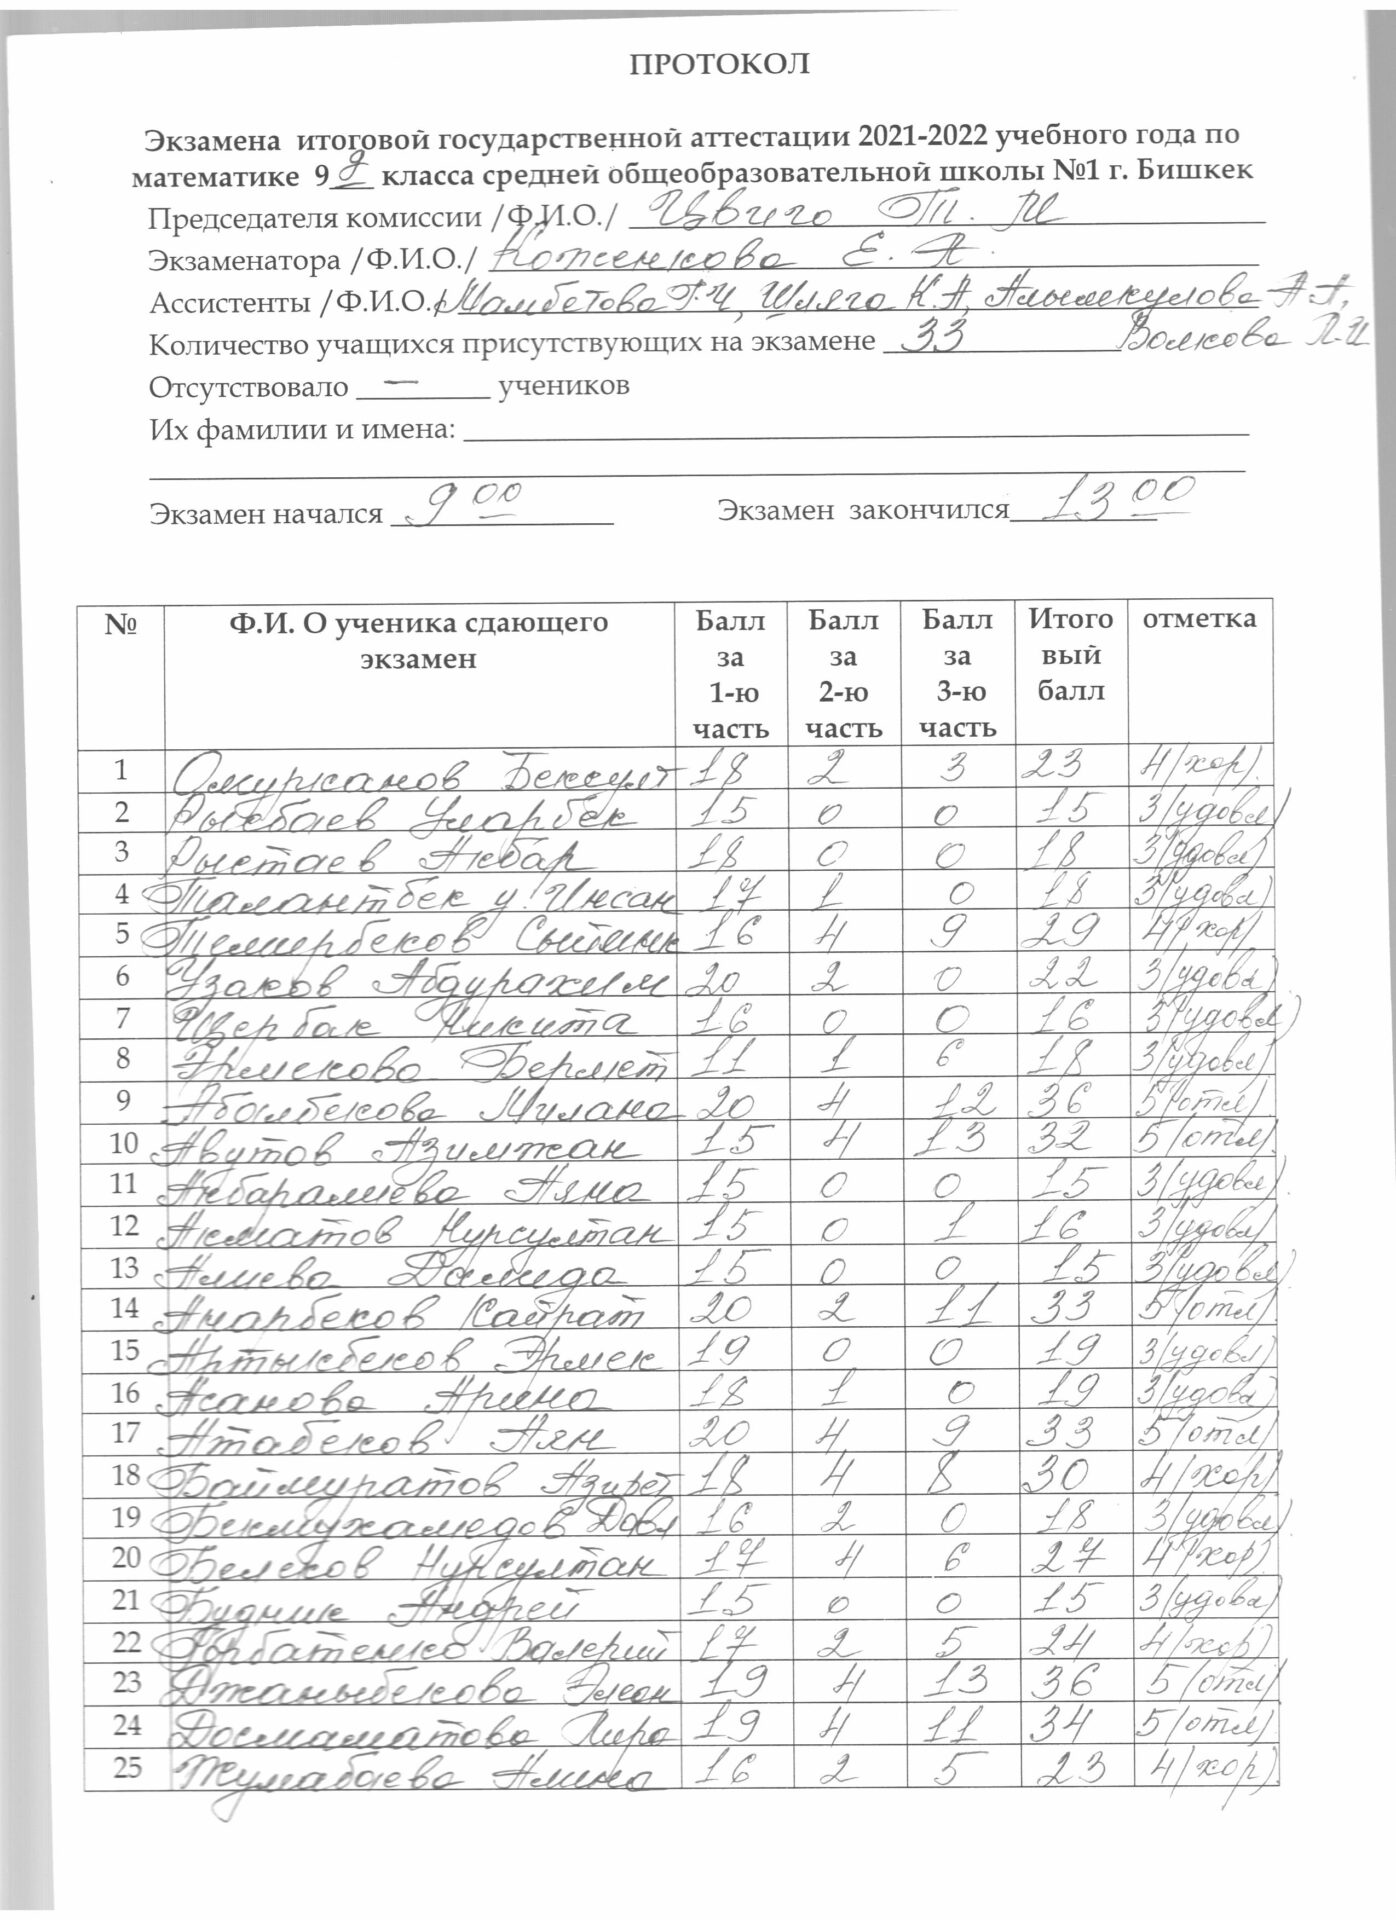 ПРОТОКОЛ
Экзамена итоговой государственной аттестации 2021-2022 учебного года по
математике 9 д класса средней общеобразовательной школы №1 г. Бишкек
Председателя комиссии /Ф.И.О./ Цвиго Т. М
Экзаменатора /Ф.И.О./ Коженкова Е. А.
Ассистенты /Ф.И.О./ Мамбетова Г.Ч, Шляга К.А, Алымкулова А А,
Количество учащихся присутствующих на экзамене 33 Волкова Л.И
Отсутствовало — учеников
Их фамилии и имена:
Экзамен начался 9 00 Экзамен закончился 13 00
№ Ф.И. О ученика сдающего экзамен Балл за 1-ю часть Балл за 2-ю часть Балл за 3-ю часть Итоговый балл отметка
1 Омурканов Бексулт 18 2 3 23 4(хор).
2 Рысбаев Уларбек 15 0 0 15 3(удовл)
3 Рыстаев Акбар 18 0 0 18 3(удовл)
4 Талантбек у. Инсан 17 1 0 18 3(удовл)
5 Темирбеков 16 4 9 29 4(хор)
6 Узаков Абдурахим 20 2 0 22 3(удовл)
7 Щербак Никита 16 0 0 16 3(удовл)
8 Эрмекова Бермет 11 1 6 18 3(удовл)
9 Абалбекова Милана 20 4 12 36 5(отл)
10 Авутов Азимжан 15 4 13 32 5(отл).
11 Акбаралиева Аяна 15 0 0 15 3(удовл).
12 Акматов Нурсултан 15 0 1 16 3(удовл)
13 Алиева Далида 15 0 0 15 3(удовл)
14 Анарбеков Кайрат 20 2 11 33 5(отл).
15 Артыкбеков Эрмек 19 0 0 19 3(удовл)
16 Асанова Арина 18 1 0 19 3(удовл)
17 Атабеков Аян 20 4 9 33 5(отл)
18 Баймуратов Азирет 18 4 8 30 4(хор)
19 Бекмухамедов Довл 16 2 0 18 3(удовл)
20 Белеков Нурсултан 17 4 6 27 4(хор).
21 Будник Андрей 15 0 0 15 3(удовл)
22 Горбатенко Валерий 17 2 5 24 4(хор)
23 Джаныбекова 19 4 13 36 5(отл)
24 Досмаматова 19 4 11 34 5(отл).
25 Жумабаева Алина 16 2 5 23 4(хор).